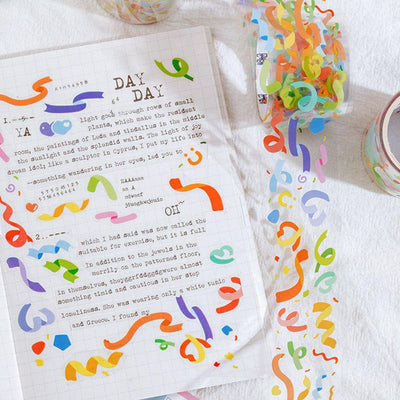 DAY
DAY
gd
1.----
YA
light goes through rows of small
plants, which make the resident
room, the paintings of Leda and tindallus in the middle
the sunlight and the splendid walls. The light of joy
dream idol; like a sculptor in Cyprus, I put my life into
--something wandering in her eyes, led you to
OH~
2.----
which I had said was now called the
suitable for exercise, but it is full
In addition to the jewels in the
merrily on the patterned floor,
in themselves, theyggrfddgggwere almost
something timid and cautious in her step
loneliness. She was wearing only a white tunic
and Greece. I found my